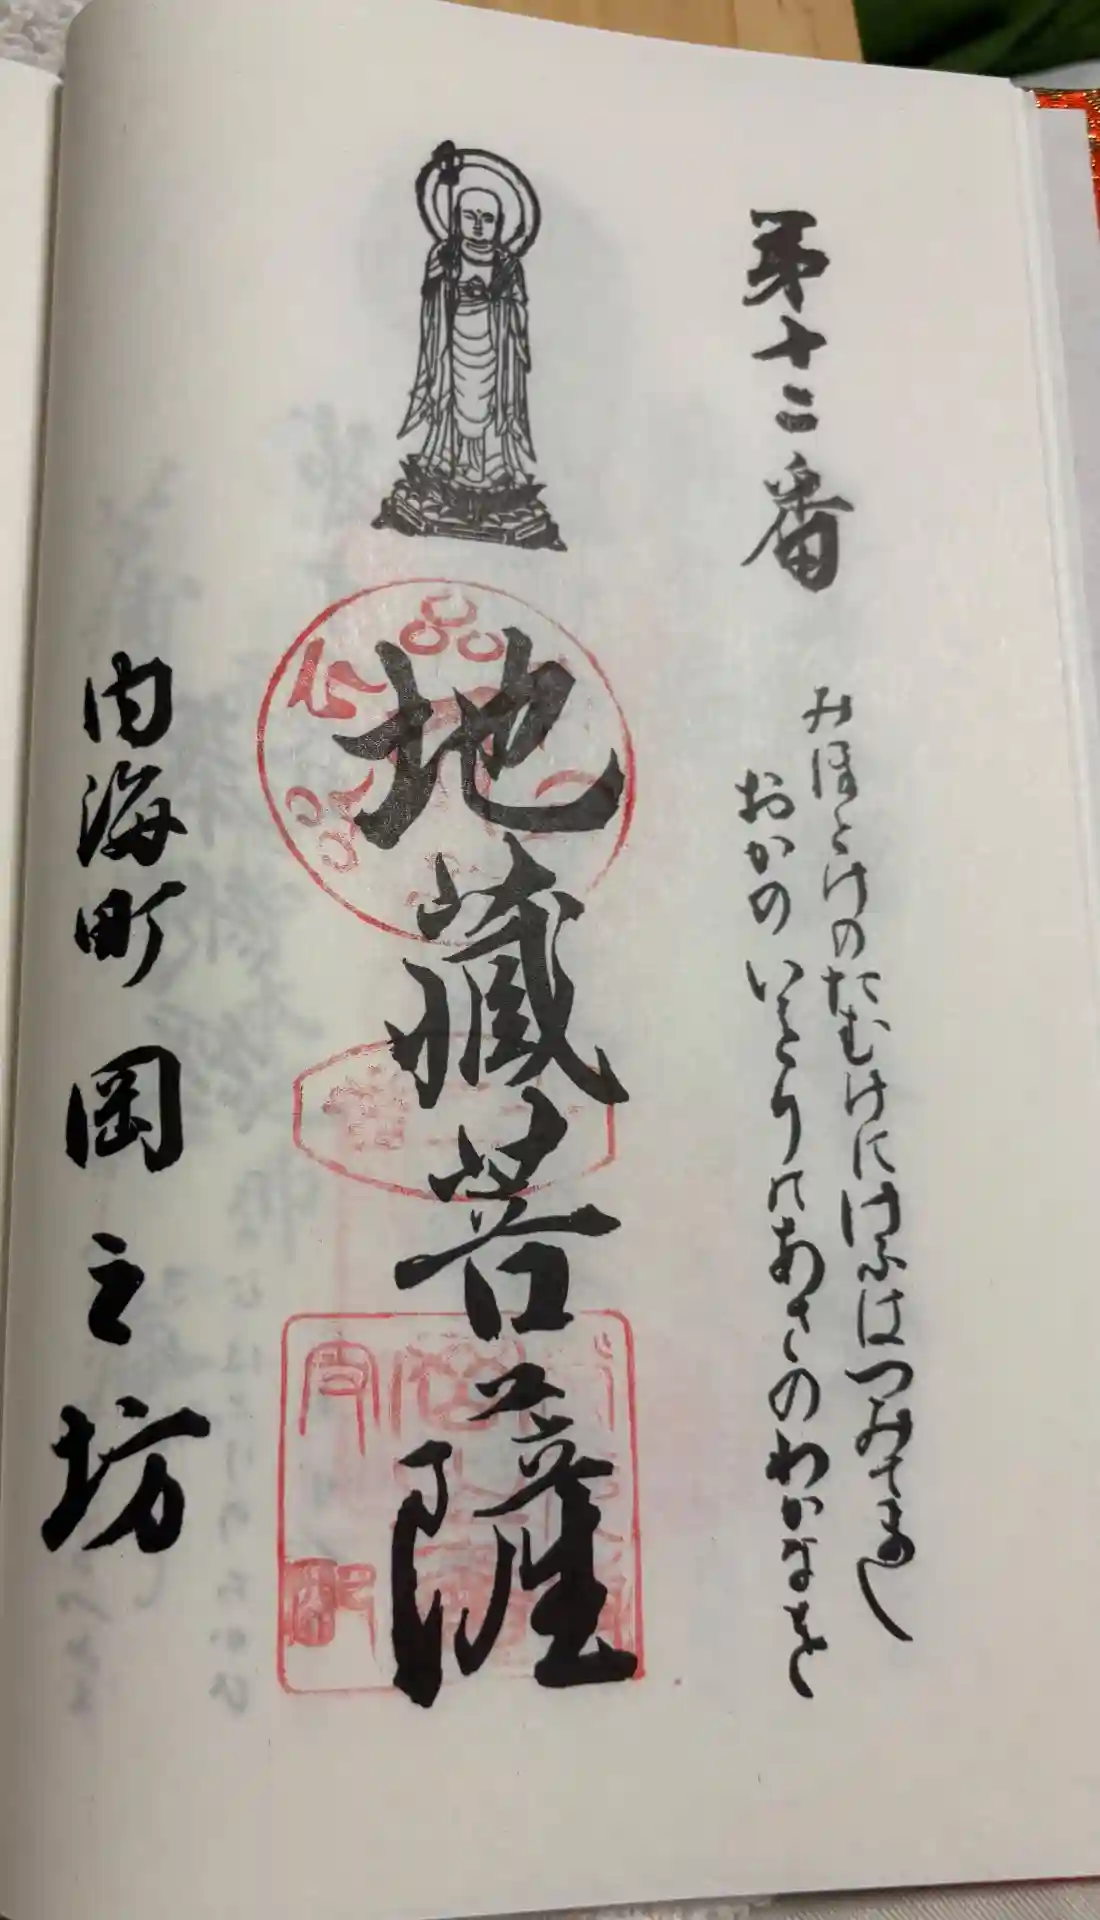 第十二番
みほとけのたむけにけふはつみてまし
おかのいほりのあさのわかなを
地藏菩薩
内海町 岡之坊